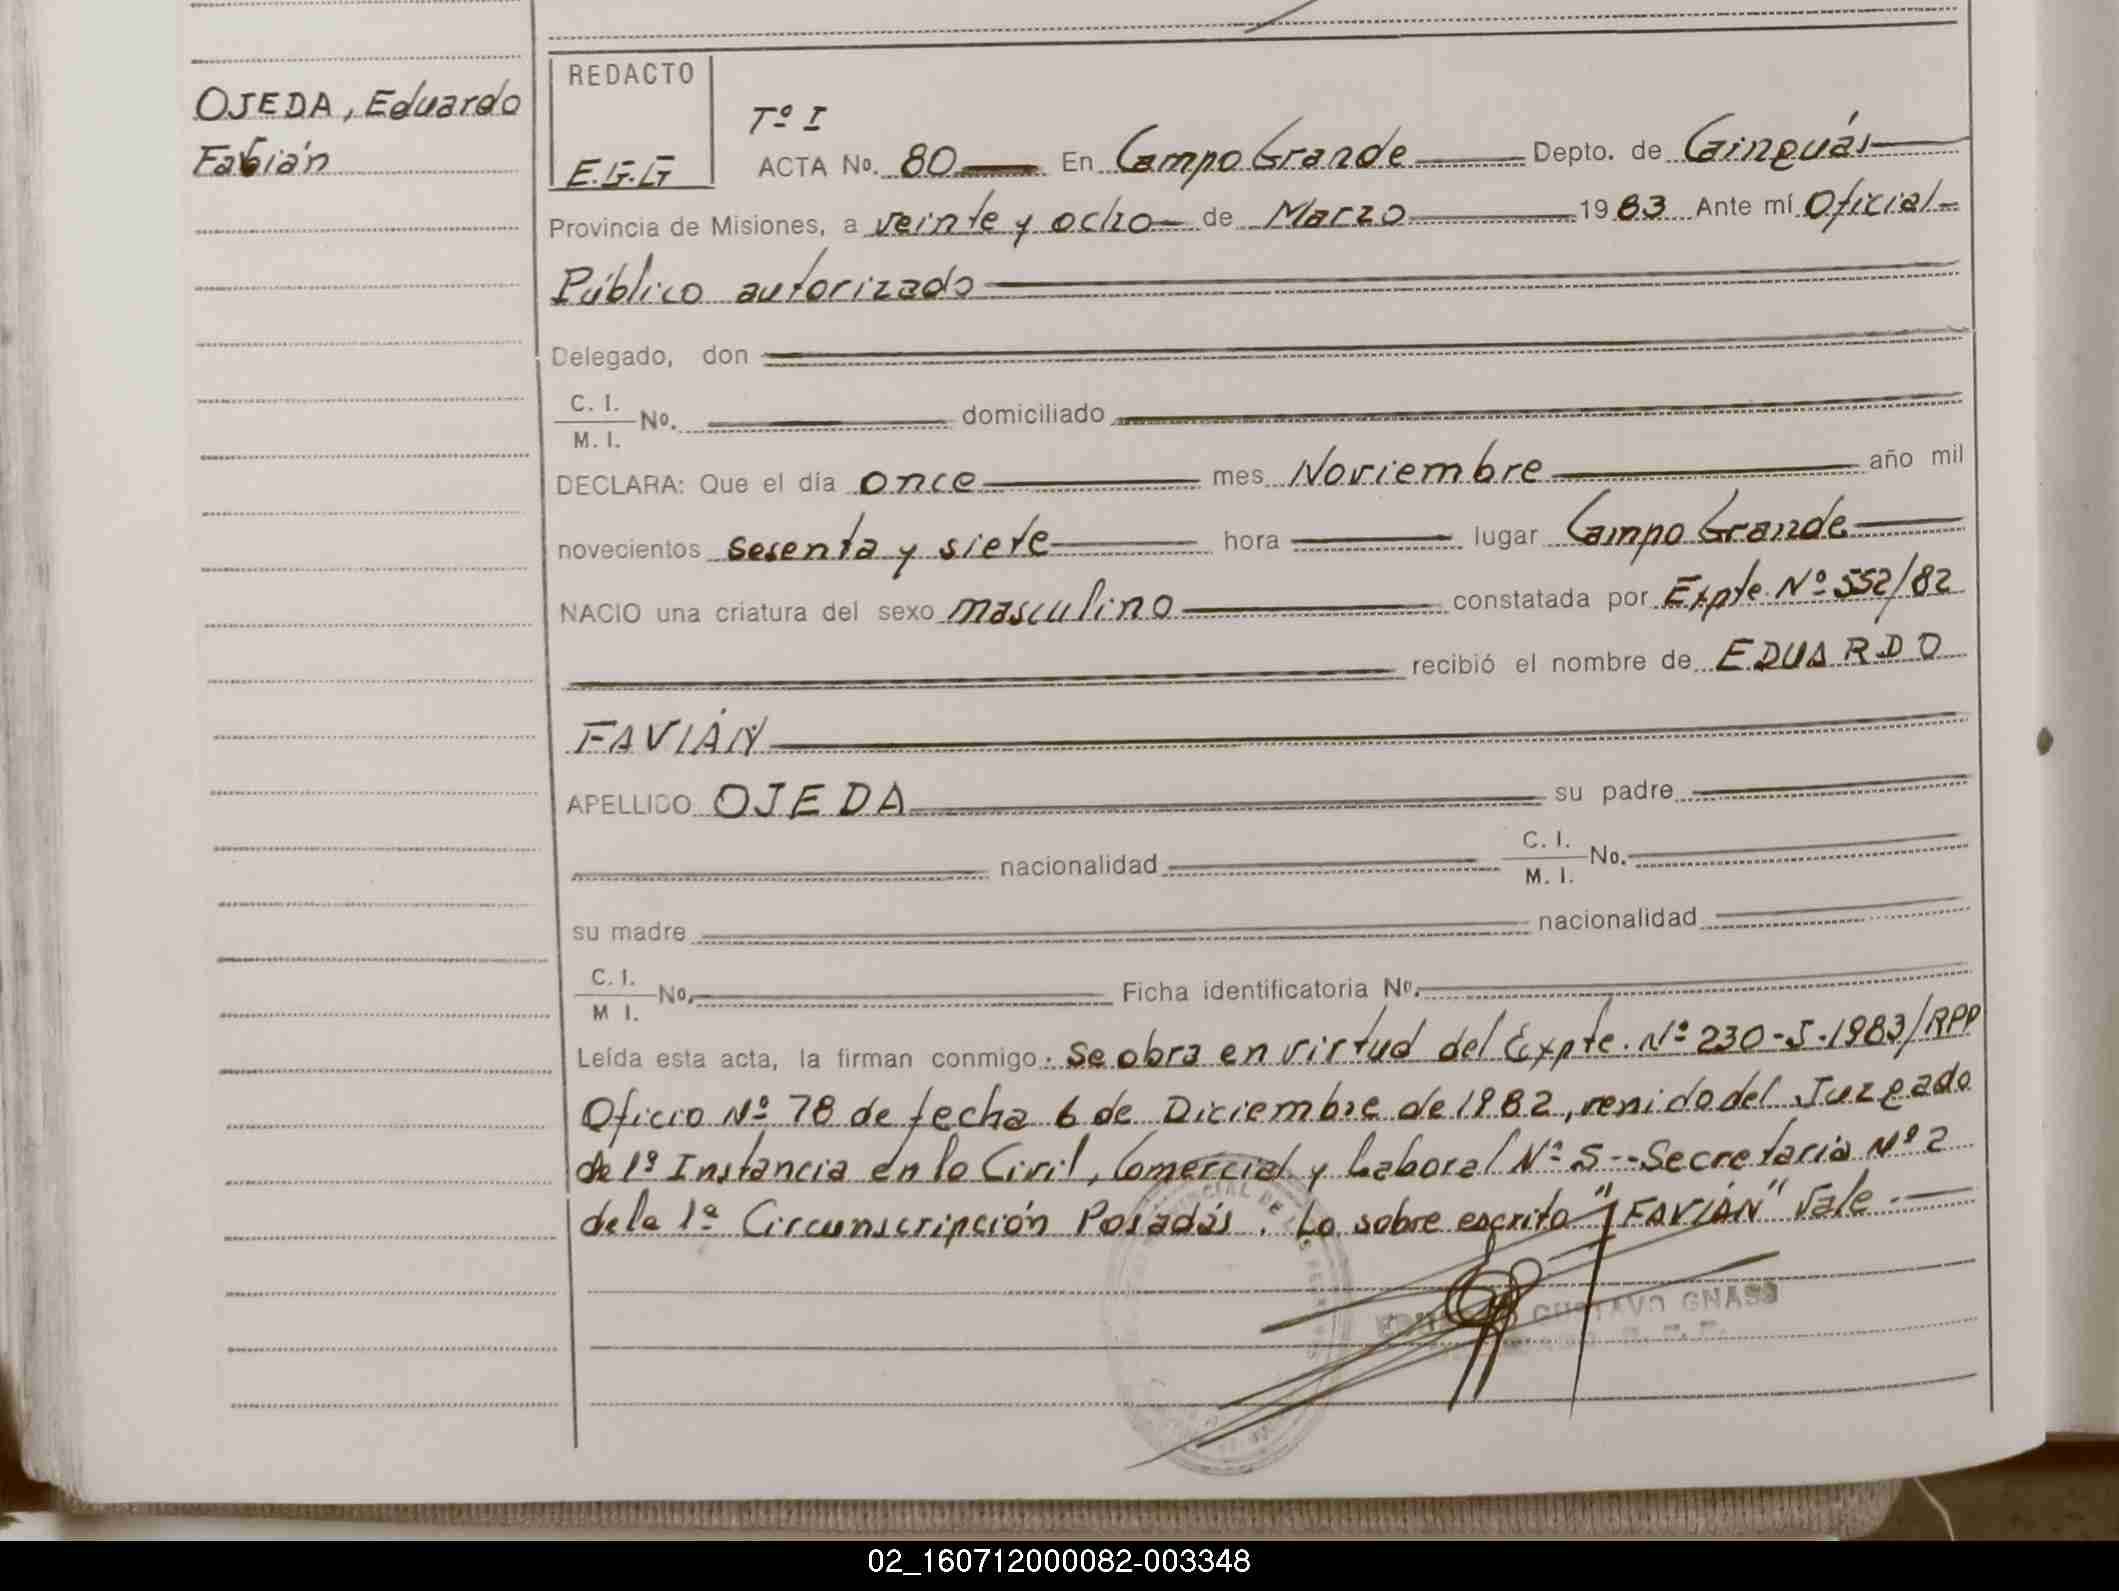 OJEDA, Eduardo
Fabián
REDACTO
E.G.G
Tº I
ACTA No. 80 En Campo Grande Depto. de Cainguás
Provincia de Misiones, a veinte y ocho de Marzo 1983 Ante mí Oficial
Público autorizado
Delegado, don
C. I.
M. I. No. domiciliado
DECLARA: Que el día once mes Noviembre año mil
novecientos sesenta y siete hora lugar Campo Grande
NACIO una criatura del sexo masculino constatada por Expte. Nº 552/82
recibió el nombre de EDUARDO
FAVIÁN
APELLIDO OJEDA su padre
nacionalidad C. I.
M. I. No.
su madre nacionalidad
C. I.
M I. No. Ficha identificatoria No.
Leída esta acta, la firman conmigo: Se obra en virtud del Expte. Nº 230-J-1983/RPP
Oficio Nº 78 de fecha 6 de Diciembre de 1982, venido del Juzgado
de 1º Instancia en lo Civil, Comercial y Laboral Nº 5--Secretaria Nº 2
de la 1ª Circunscripción Posadas. Lo sobre escrito "FAVIÁN" Vale.-
GUSTAVO GNASS
02_160712000082-003348